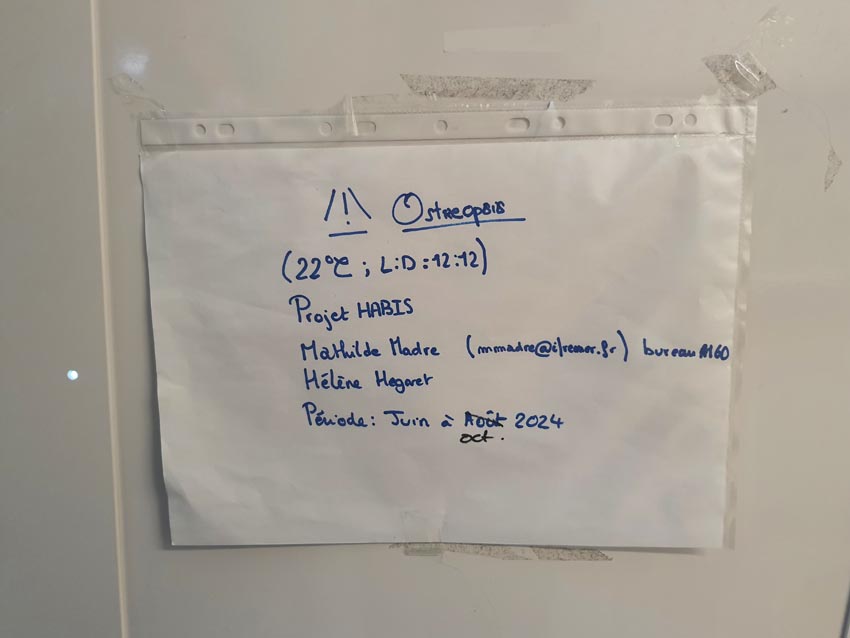 /!\ Ostreopsis
(22°C ; L:D:12:12)
Projet HABIS
Mathilde Madre (mmadre@ifremer.fr) bureau A160
Hélène Hegaret
Période: Juin à Août 2024
oct.